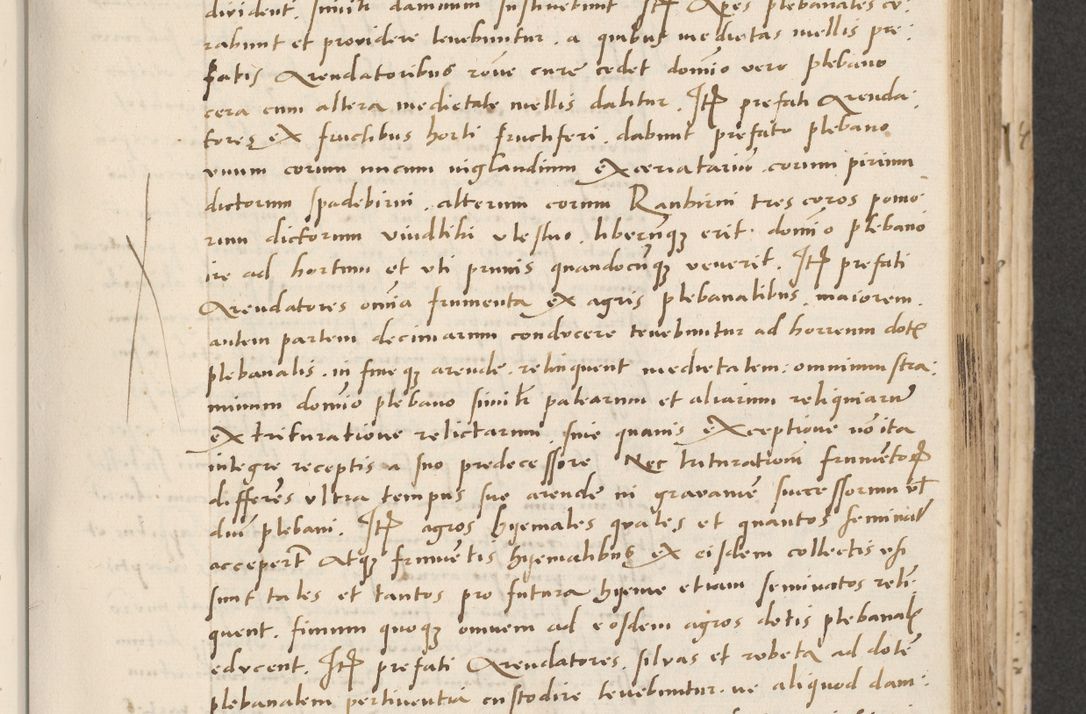 divident. simili damnum sustinebunt Itp Apes plebanales cu:
rabunt et providere tenebuntur. a quibus medietas mellis pre:
fatis Arendatoribus rōne cure cedet domīo vero plebano
cera cum altera medietate mellis dabitur. Itp prefati Arenda:
tores ex fructibus horti fructiferi. dabunt prefato plebano
vnum corum nucum niglandium exceriatarum. corum pirium
dictorum spadebirni. alterum corum Ranbirni tres coros pomo
rum dictorum viudliki vlestuo. liberumqʒ erit. domīo plebano
ire ad hortum et vti prunis quandocūqʒ venerit. Itp prefati
Arendatores omīa frumenta ex agris plebanalibus. maiorem.
autem partem decimarum conducere tenebuntur ad horreum dotꝭ
plebanalis. in fineqʒ arende. relinquent medietatem. omnium stra:
minum domīo plebano similr̄ palearum et aliarum reliquiarū
ex trituratione relictarum. sine quauis exceptione uō ita
integre receptis a suo predecessore Nec triturationi frumētorꝝ
differēs vltra tempus sue arende in grauamē successorum vl̄
dnī plebani. Itp agros hyemales quales et quantos seminat
acceperūt Atqʒ frumētis hyemalibus ex eisdem collectis vsi
sunt tales et tantos pro futura hyeme etiam seminatos relī
quent. fimum quoqʒ omnem ad eosdem agros dotis plebanalꝭ
educent. Itp prefati Arendatores. siluas et robeta ad dotē
plebanalem pertinentia custodire tenebuntur. ne aliquod dam: